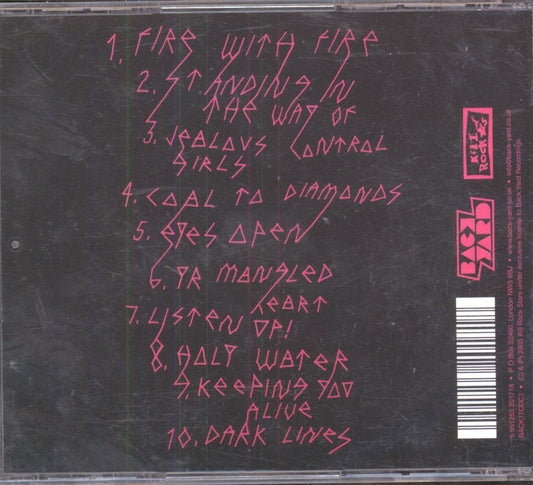 1. FIRE WITH FIRE
2. STANDING IN
THE WAY OF
3. JEALOUS CONTROL
GIRLS
4. COAL TO DIAMONDS
5. EYES OPEN
6. YR MANGLED
HEART
7. LISTEN UP!
8. HOLY WATER
9. KEEPING YOU
ALIVE
10. DARK LINES
KILL
ROCK
BACK
YARD
• P O Box 52460, London NW3 • www.back-yard.co.uk • info@back-yard.co.uk
BACK17CDC1 • (C) & (P) 2005 Kill Rock Stars under exclusive license to Back Yard Recordings.